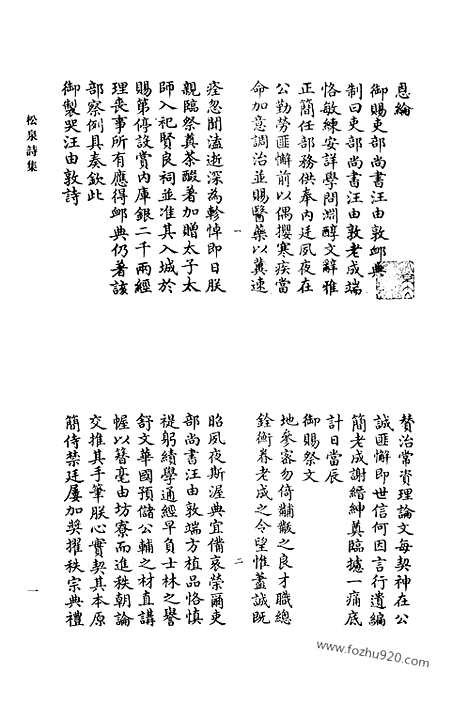 恩綸
御賜吏部尚書汪由敦卹典
制曰吏部尚書汪由敦老成端
恪敏練安詳學問淵醇文辭雅
正簡任部務供奉內廷夙夜在
公勤勞匪懈前以偶攖寒疾當
命加意調治並賜醫藥以冀速
痊忽聞溘逝深為軫悼即日朕
親臨祭奠茶酸著加贈太子太
師入祀賢良祠並准其入城於
賜第停設賞內庫銀二千兩經
理喪事所有應得卹典仍著該
部察例具奏欽此
御製哭汪由敦詩
一
贊治常資理論文每契神在公
誠匪懈即世信何因言行遺編
簡老成謝縉紳奠臨攄一痛底
計日當辰
御賜祭文
地參容勿倚黼黻之良才職總
銓衡眷老成之令望惟藎誠既
昭夙夜斯渥典宜備哀榮爾吏
部尚書汪由敦端方植品恪慎
禔躬績學通經早負士林之譽
舒文華國預儲公輔之材直講
幄以簪毫由坊寮而進秩朝論
交推其手筆朕心實契其本原
簡侍禁廷屢加奨擢秩宗典禮
二
松泉詩集
一
www.fozhu920.com